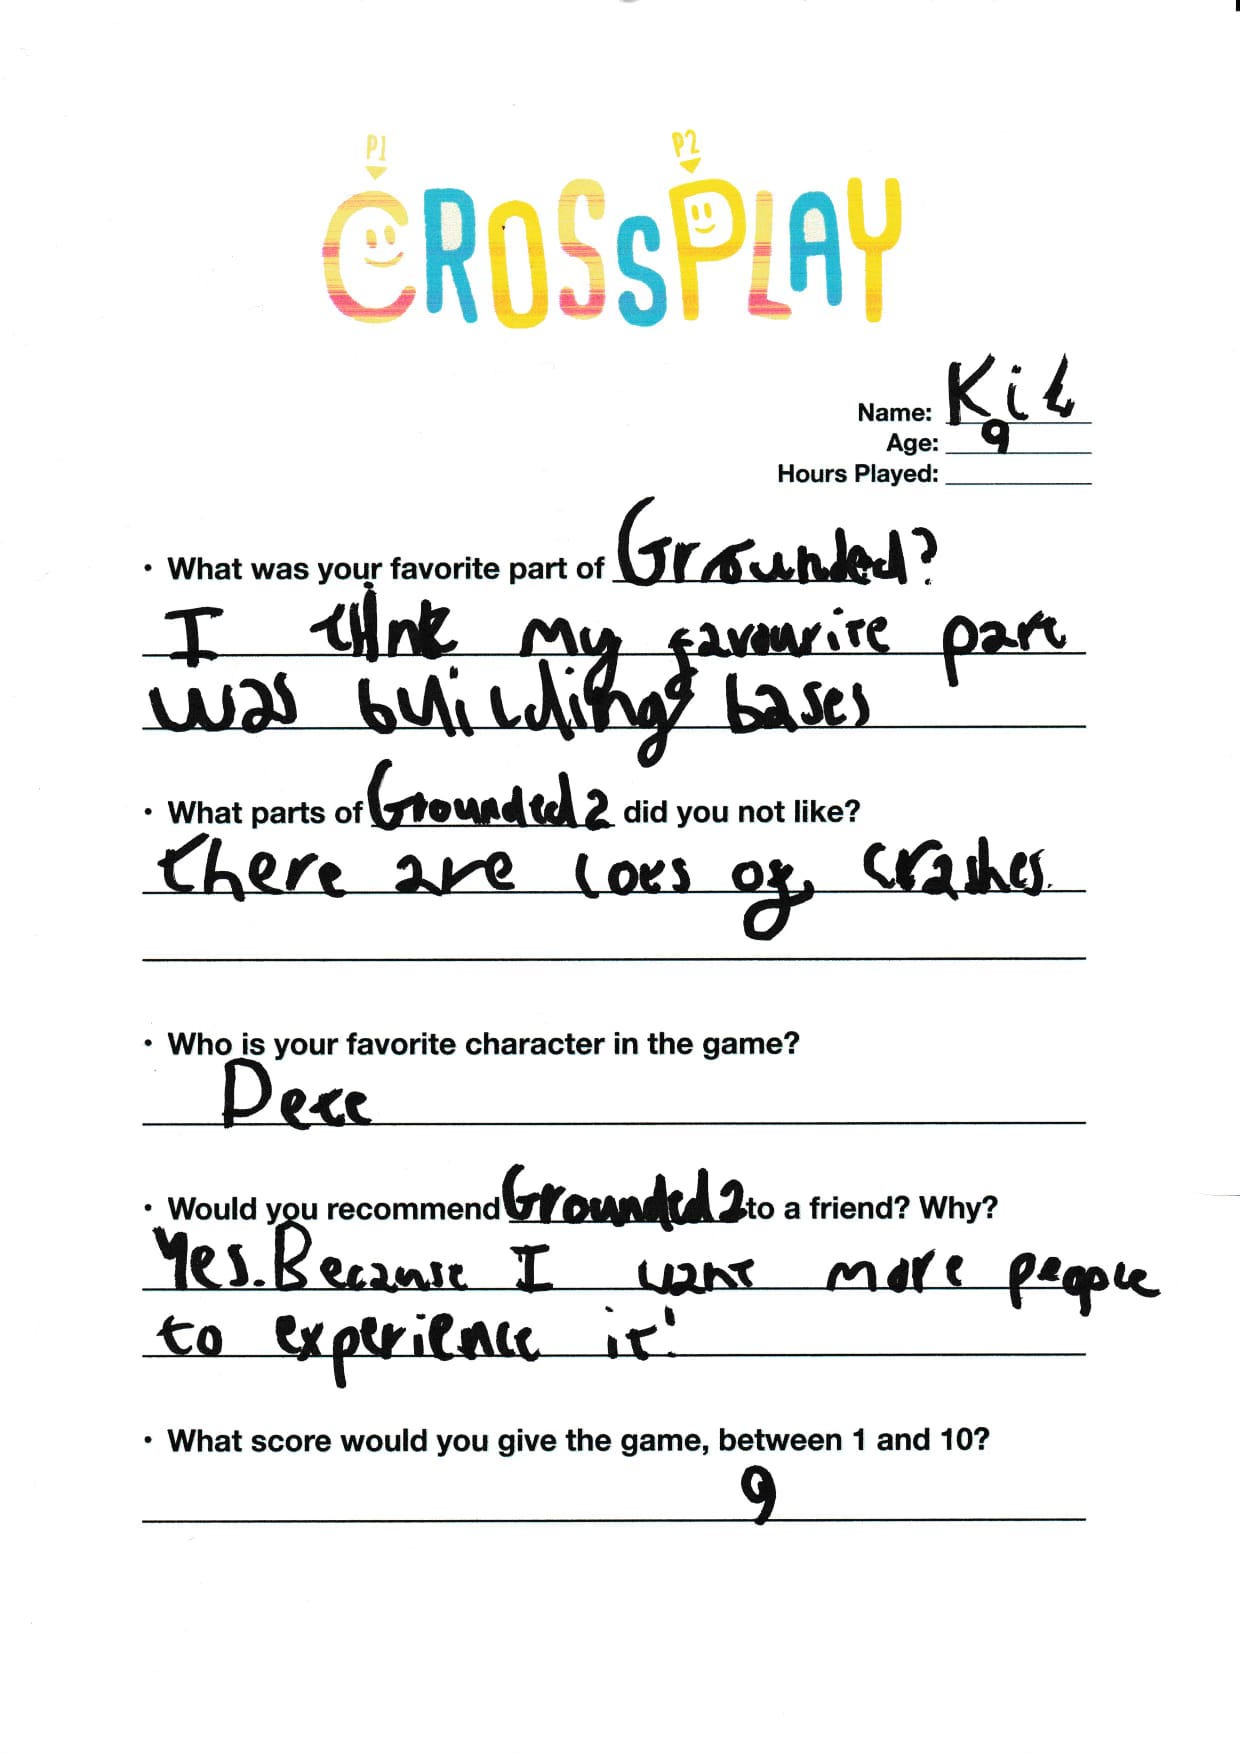 P1 P2
CROSSPLAY
Name: Kit
Age: 9
Hours Played:
• What was your favorite part of Grounded?
I think my favourite part
was building bases
• What parts of Grounded 2 did you not like?
there are lots of crashes.
• Who is your favorite character in the game?
Pete
• Would you recommend Grounded 2 to a friend? Why?
Yes. Because I want more people
to experience it!
• What score would you give the game, between 1 and 10?
9